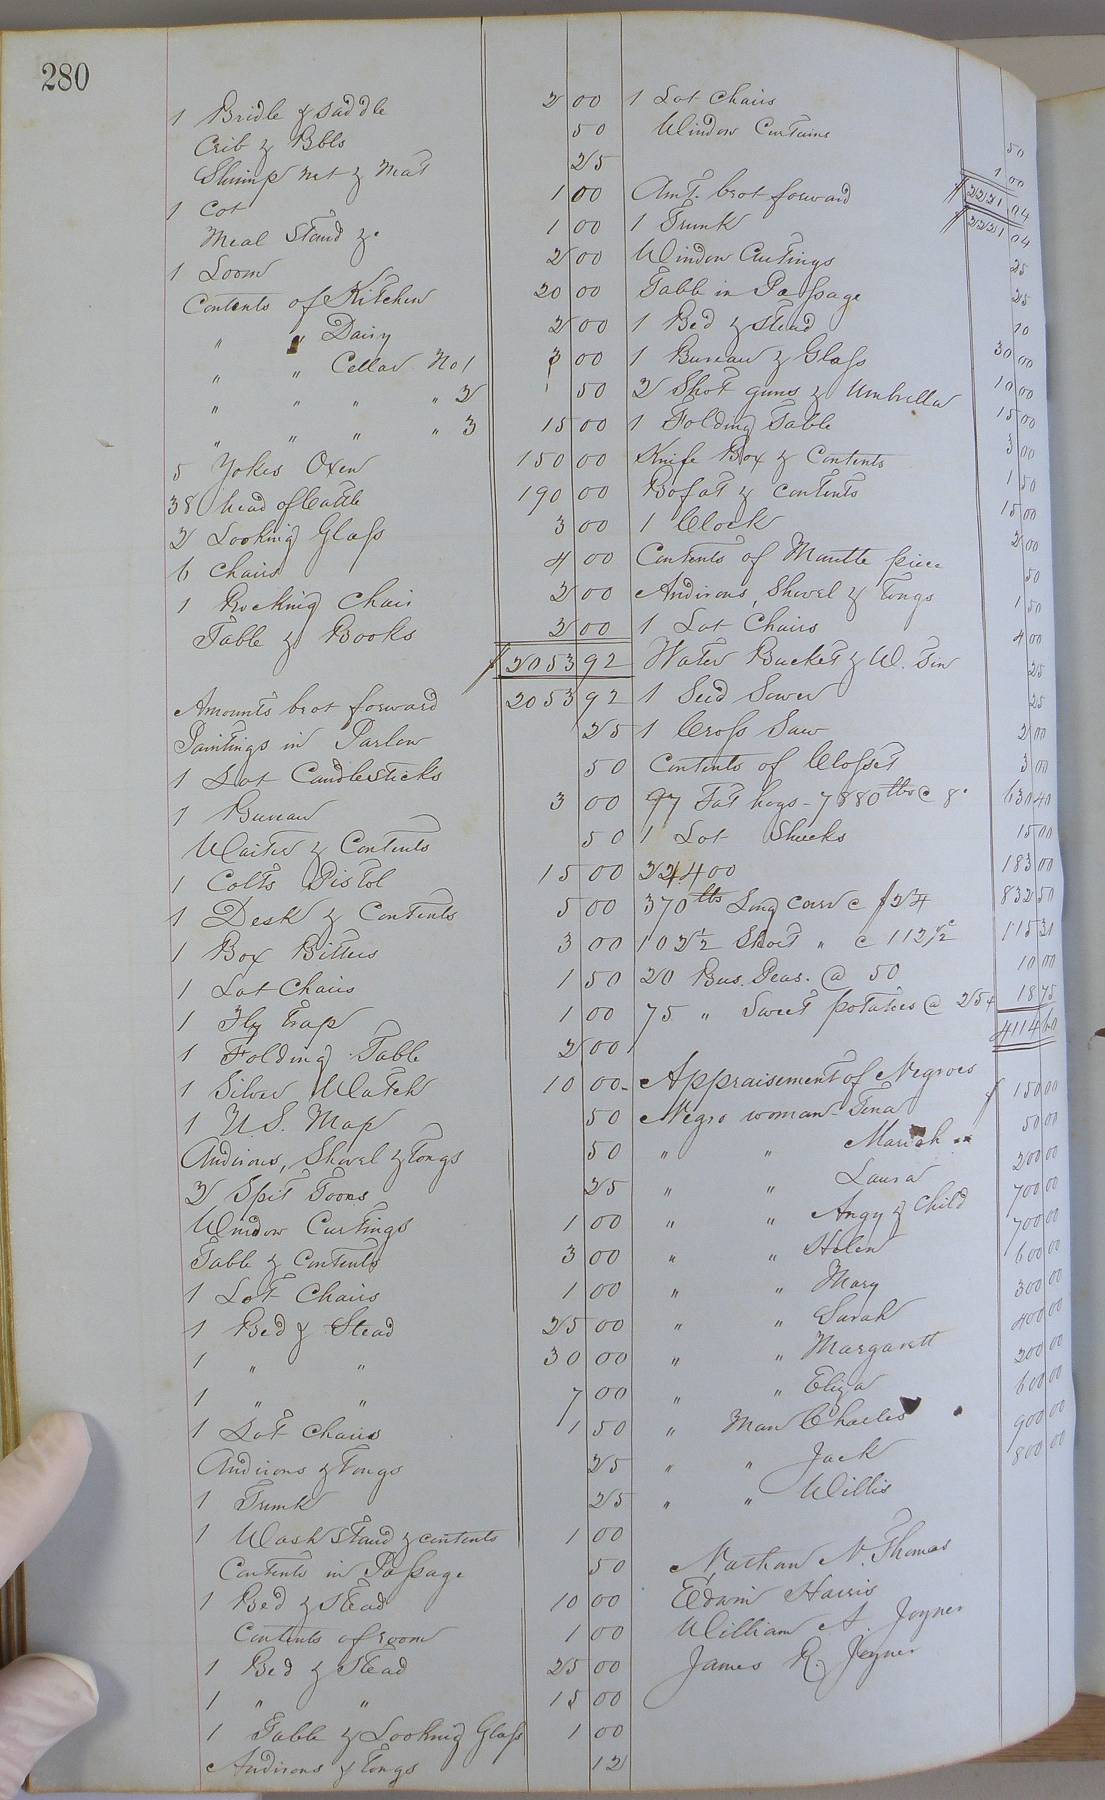 280
1 Bridle & Saddle 2 00
Crib & Bbls 50
Shrimp net & Mat 25
1 Cot 1 00
Meal Stand &c 1 00
1 Loom 2 00
Contents of Kitchen 20 00
" " Dairy 2 00
" " Cellar No 1 3 00
" " " " 2 50
" " " " 3 15 00
5 Yokes Oxen 150 00
38 head of Cattle 190 00
2 Looking Glass 3 00
6 Chairs 4 00
1 Rocking Chair 2 00
Table & Books 2 00
$ 2053 92
Amounts brot forward 2053 92
Paintings in Parlow 25
1 Lot Candlesticks 50
1 Bureau 3 00
Waiter & Contents 50
1 Colts Pistol 15 00
1 Desk & Contents 5 00
1 Box Bitters 3 00
1 Lot Chairs 1 50
1 Fly Trap 1 00
1 Folding Table 2 00
1 Silver Watch 10 00
1 U.S. Map 50
Andirons, Shovel & Tongs 50
2 Spit Toons 25
Window Curtings 1 00
Table & Contents 3 00
1 Lot Chairs 1 00
1 Bed & Stead 25 00
1 " " 30 00
1 " " 7 00
1 Lot Chairs 1 50
Andirons & Tongs 25
1 Trunk 25
1 Wash Stand & contents 1 00
Contents in Passage 50
1 Bed & Stead 10 00
Contents of room 1 00
1 Bed & Stead 25 00
1 " " 15 00
1 Table & Looking Glass 1 00
Andirons & Tongs 12
1 Lot Chairs 50
Window Curtains 1 00
$ 2221 04
Amt. brot forward $ 2221 04
1 Trunk 25
Window Curtings 25
Table in Passage 10
1 Bed & Stead 30 00
1 Bureau & Glass 10 00
2 Shot guns & Umbrella 15 00
1 Folding Table 3 00
Knife Box & Contents 1 50
Bofat & contents 15 00
1 Clock 2 00
Contents of Mantle piece 50
Andirons, Shovel & Tongs 1 50
1 Lot Chairs 4 00
Water Bucket & W. Tin 25
1 Seed Sower 25
1 Cross Saw 2 00
Contents of Closset 3 00
97 Fat hogs - 7880 lbs @ 8c 630 40
1 Lot Shucks 15 00
22400 183 00
370 lbs Long corn @ $2 1/4 832 50
102 1/2 Short " @ 112 1/2 c 115 31
20 Bus. Peas. @ 50 10 00
75 " Sweet potatoes @ 25c 18 75
4114 60
Appraisement of Negroes
Negro woman Tina $ 150 00
" " Mariah 50 00
" " Laura 200 00
" " Angy & Child 700 00
" " Helen 700 00
" " Mary 600 00
" " Sarah 300 00
" " Margarett 400 00
" " Eliza 200 00
" Man Charles 600 00
" " Jack 900 00
" " Willis 800 00
Nathan N. Thomas
Edwin Harris
William A. Joyner
James R. Joyner